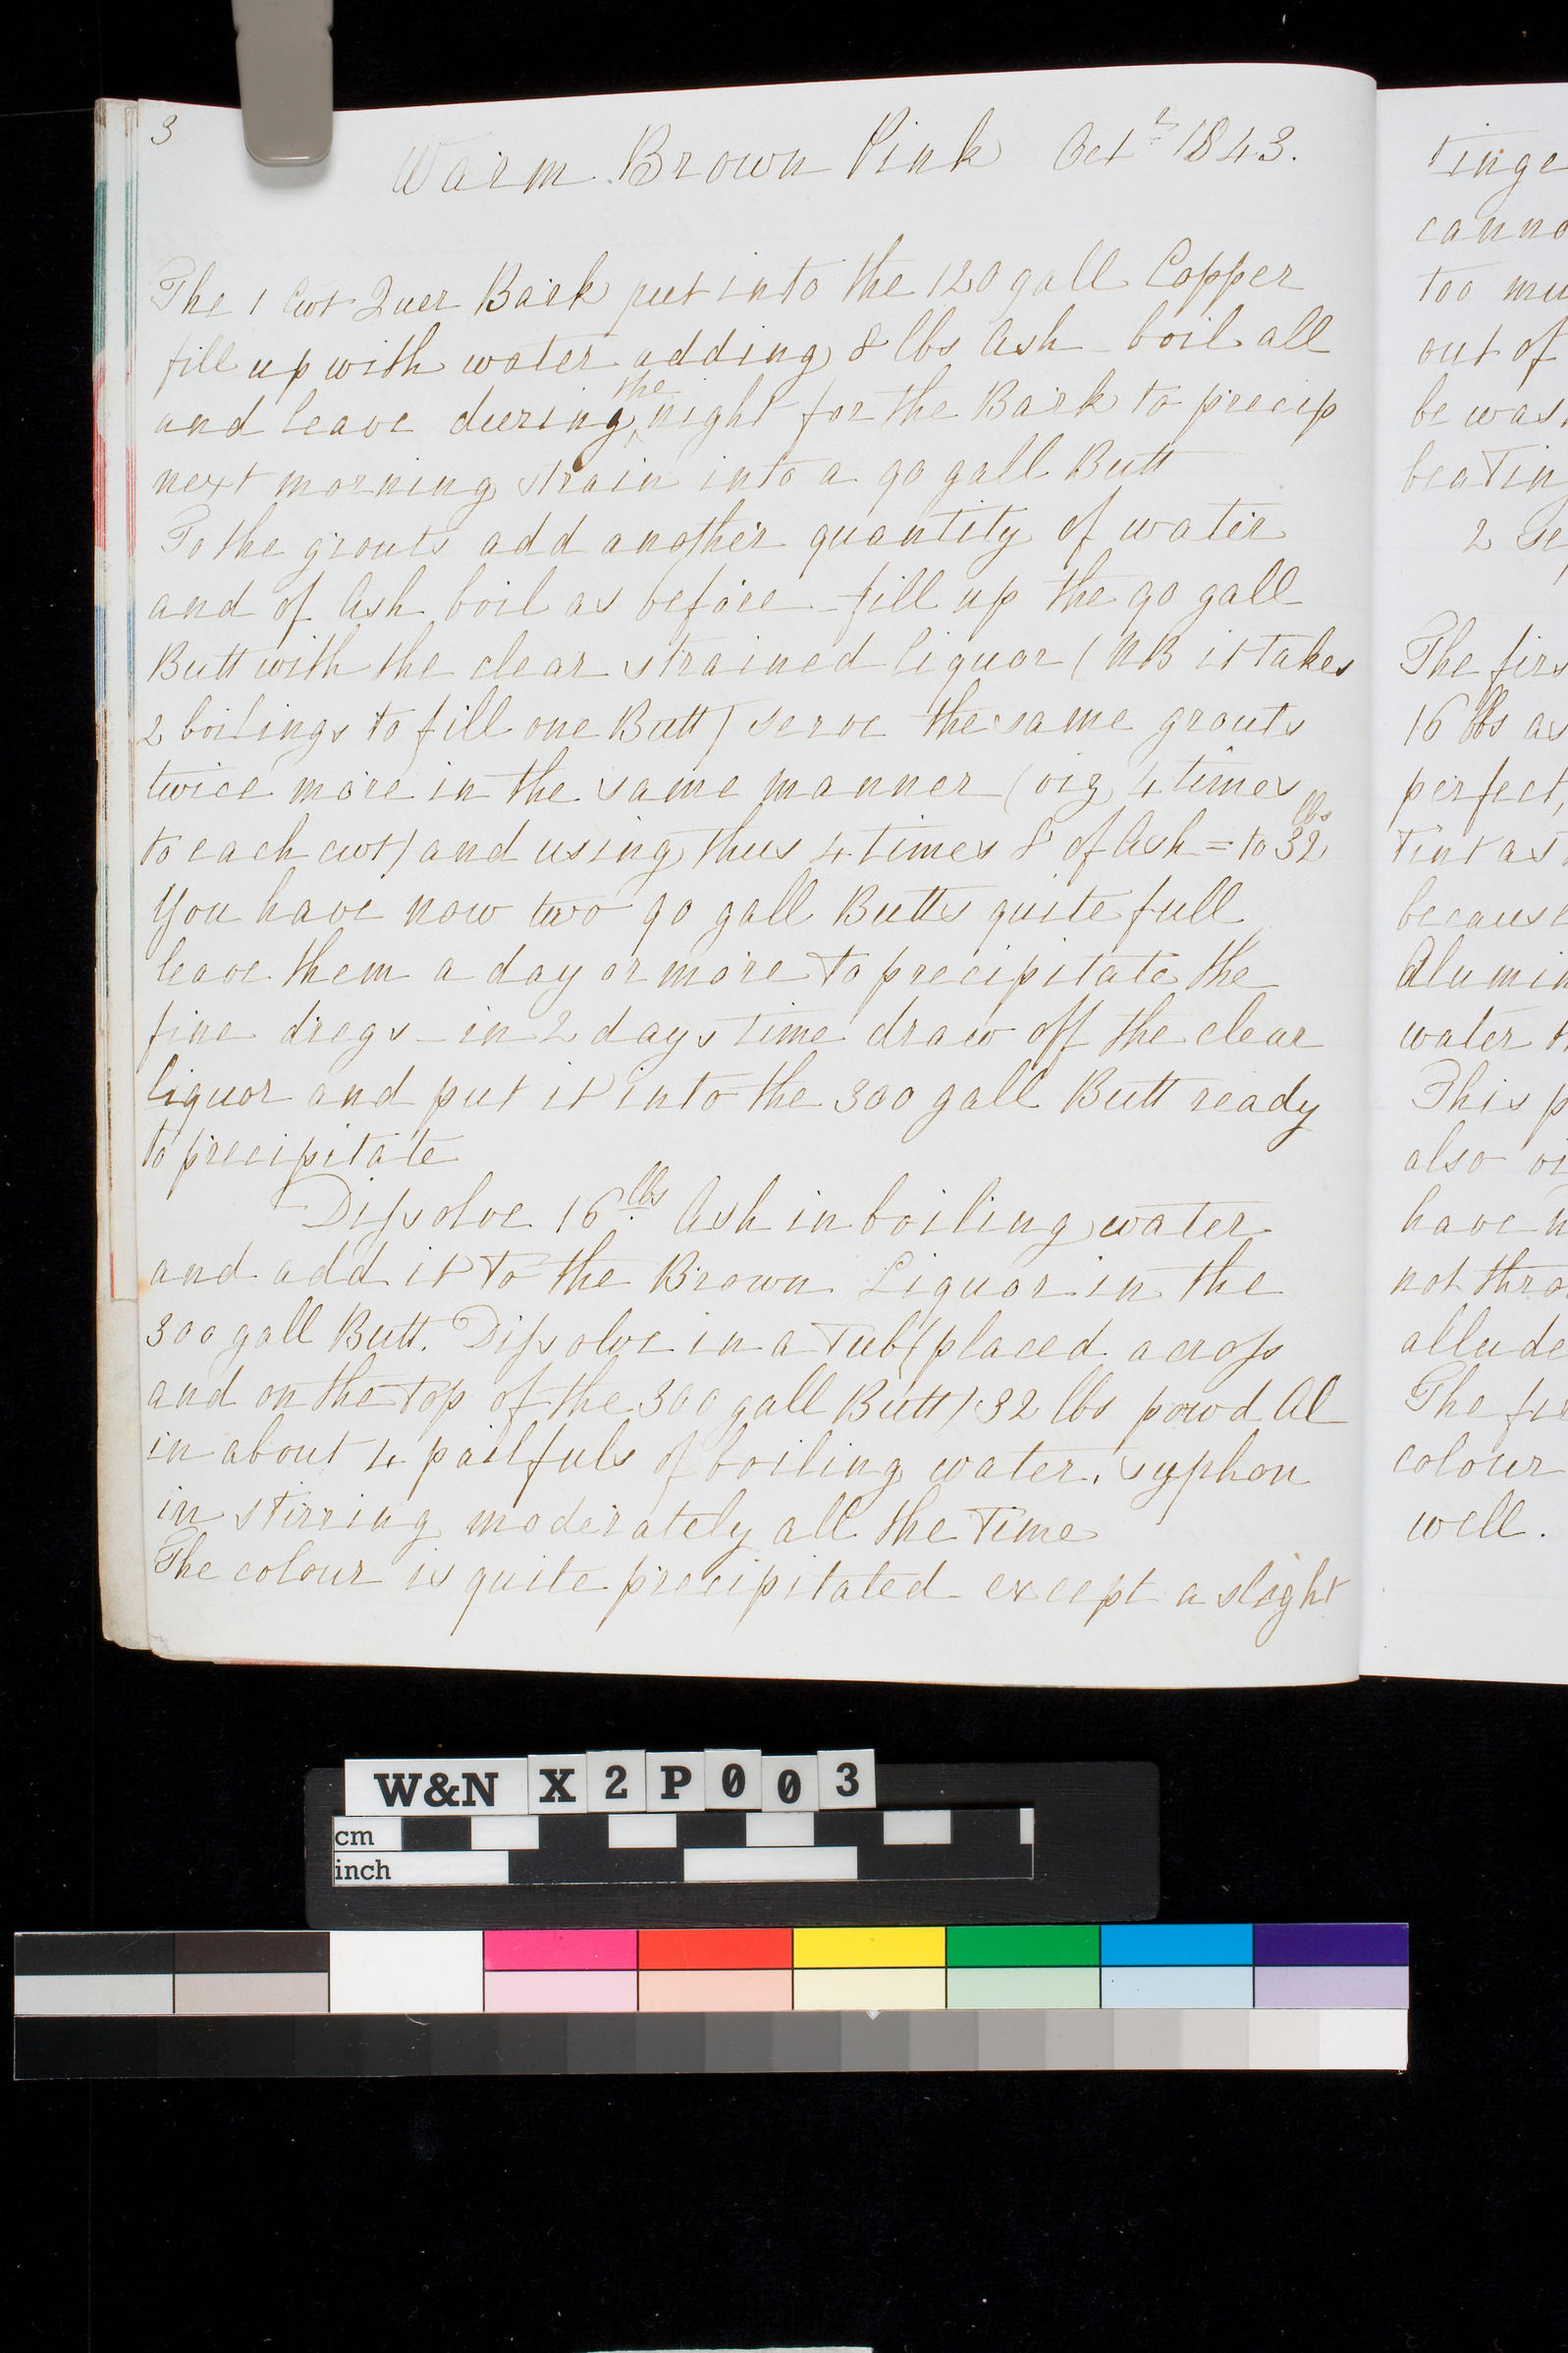 3
Warm Brown Pink Octr 1843.
The 1 Cwt Quer Bark put into the 120 gall Copper
fill up with water adding 8 lbs Ash - boil all
and leave during the night for the Bark to precip
next morning strain into a 90 gall Butt
To the grouts add another quantity of water
and of Ash boil as before - fill up the 90 gall
Butt with the clear strained liquor (NB it takes
2 boilings to fill one Butt) serve the same grouts
twice more in the same manner (viz 4 times
to each cwt) and using thus 4 times 8 of Ash = to 32 lbs
You have now two 90 gall Butts quite full
leave them a day or more to precipitate the
fine dregs - in 2 days time draw off the clear
liquor and put it into the 300 gall Butt ready
to precipitate
Dissolve 16 lbs Ash in boiling water
and add it to the Brown Liquor in the
300 gall Butt. Dissolve in a Tub (placed across
and on the top of the 300 gall Butt) 32 lbs powd Al
in about 4 pailfuls of boiling water. syphon
in stirring moderately all the Time
The colour is quite precipitated except a slight
tinge
canno
too mu
out of
be was
beatin
2
The firs
16 lbs as
perfect,
Tint as
because
Alumin
water
This p
also
have
not thro
allude
The
colour
well.
W&N X2P003
cm
inch